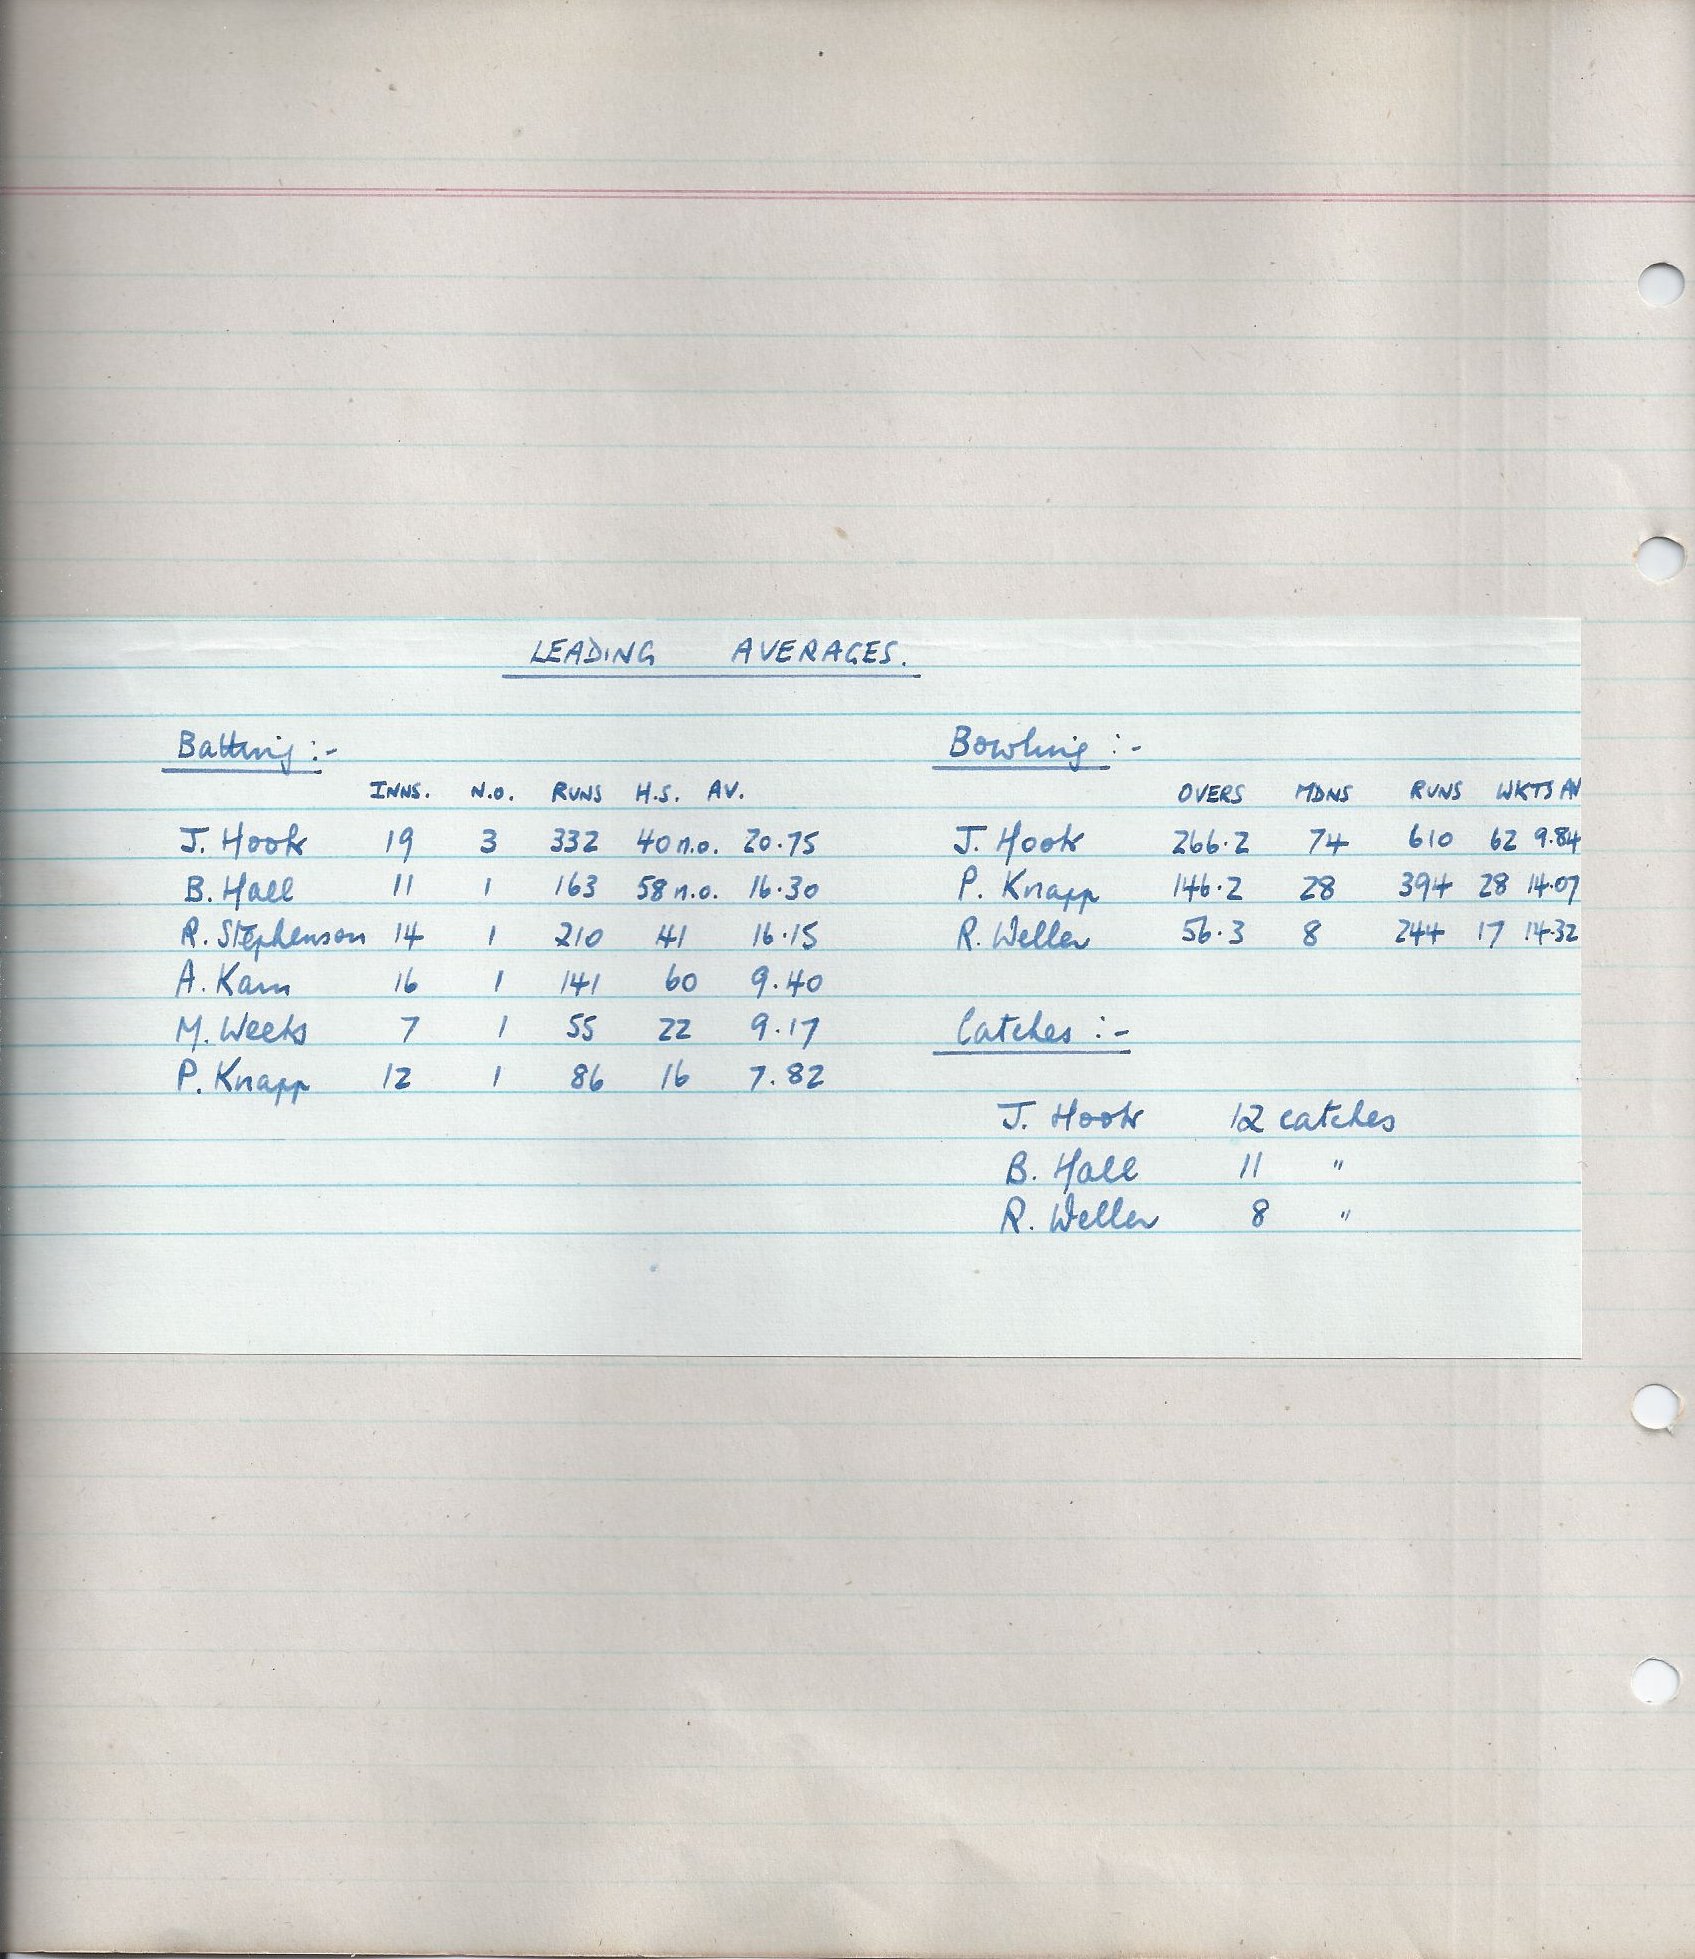 LEADING AVERAGES.
Batting :-
INNS. N.O. RUNS H.S. AV.
J. Hook 19 3 332 40 n.o. 20.75
B. Hall 11 1 163 58 n.o. 16.30
R. Stephenson 14 1 210 41 16.15
A. Kam 16 1 141 60 9.40
M. Weeks 7 1 55 22 9.17
P. Knapp 12 1 86 16 7.82
Bowling :-
OVERS MDNS RUNS WKTS AV
J. Hook 266.2 74 610 62 9.84
P. Knapp 146.2 28 394 28 14.07
R. Weller 56.3 8 244 17 14.32
Catches :-
J. Hook 12 catches
B. Hall 11 "
R. Weller 8 "